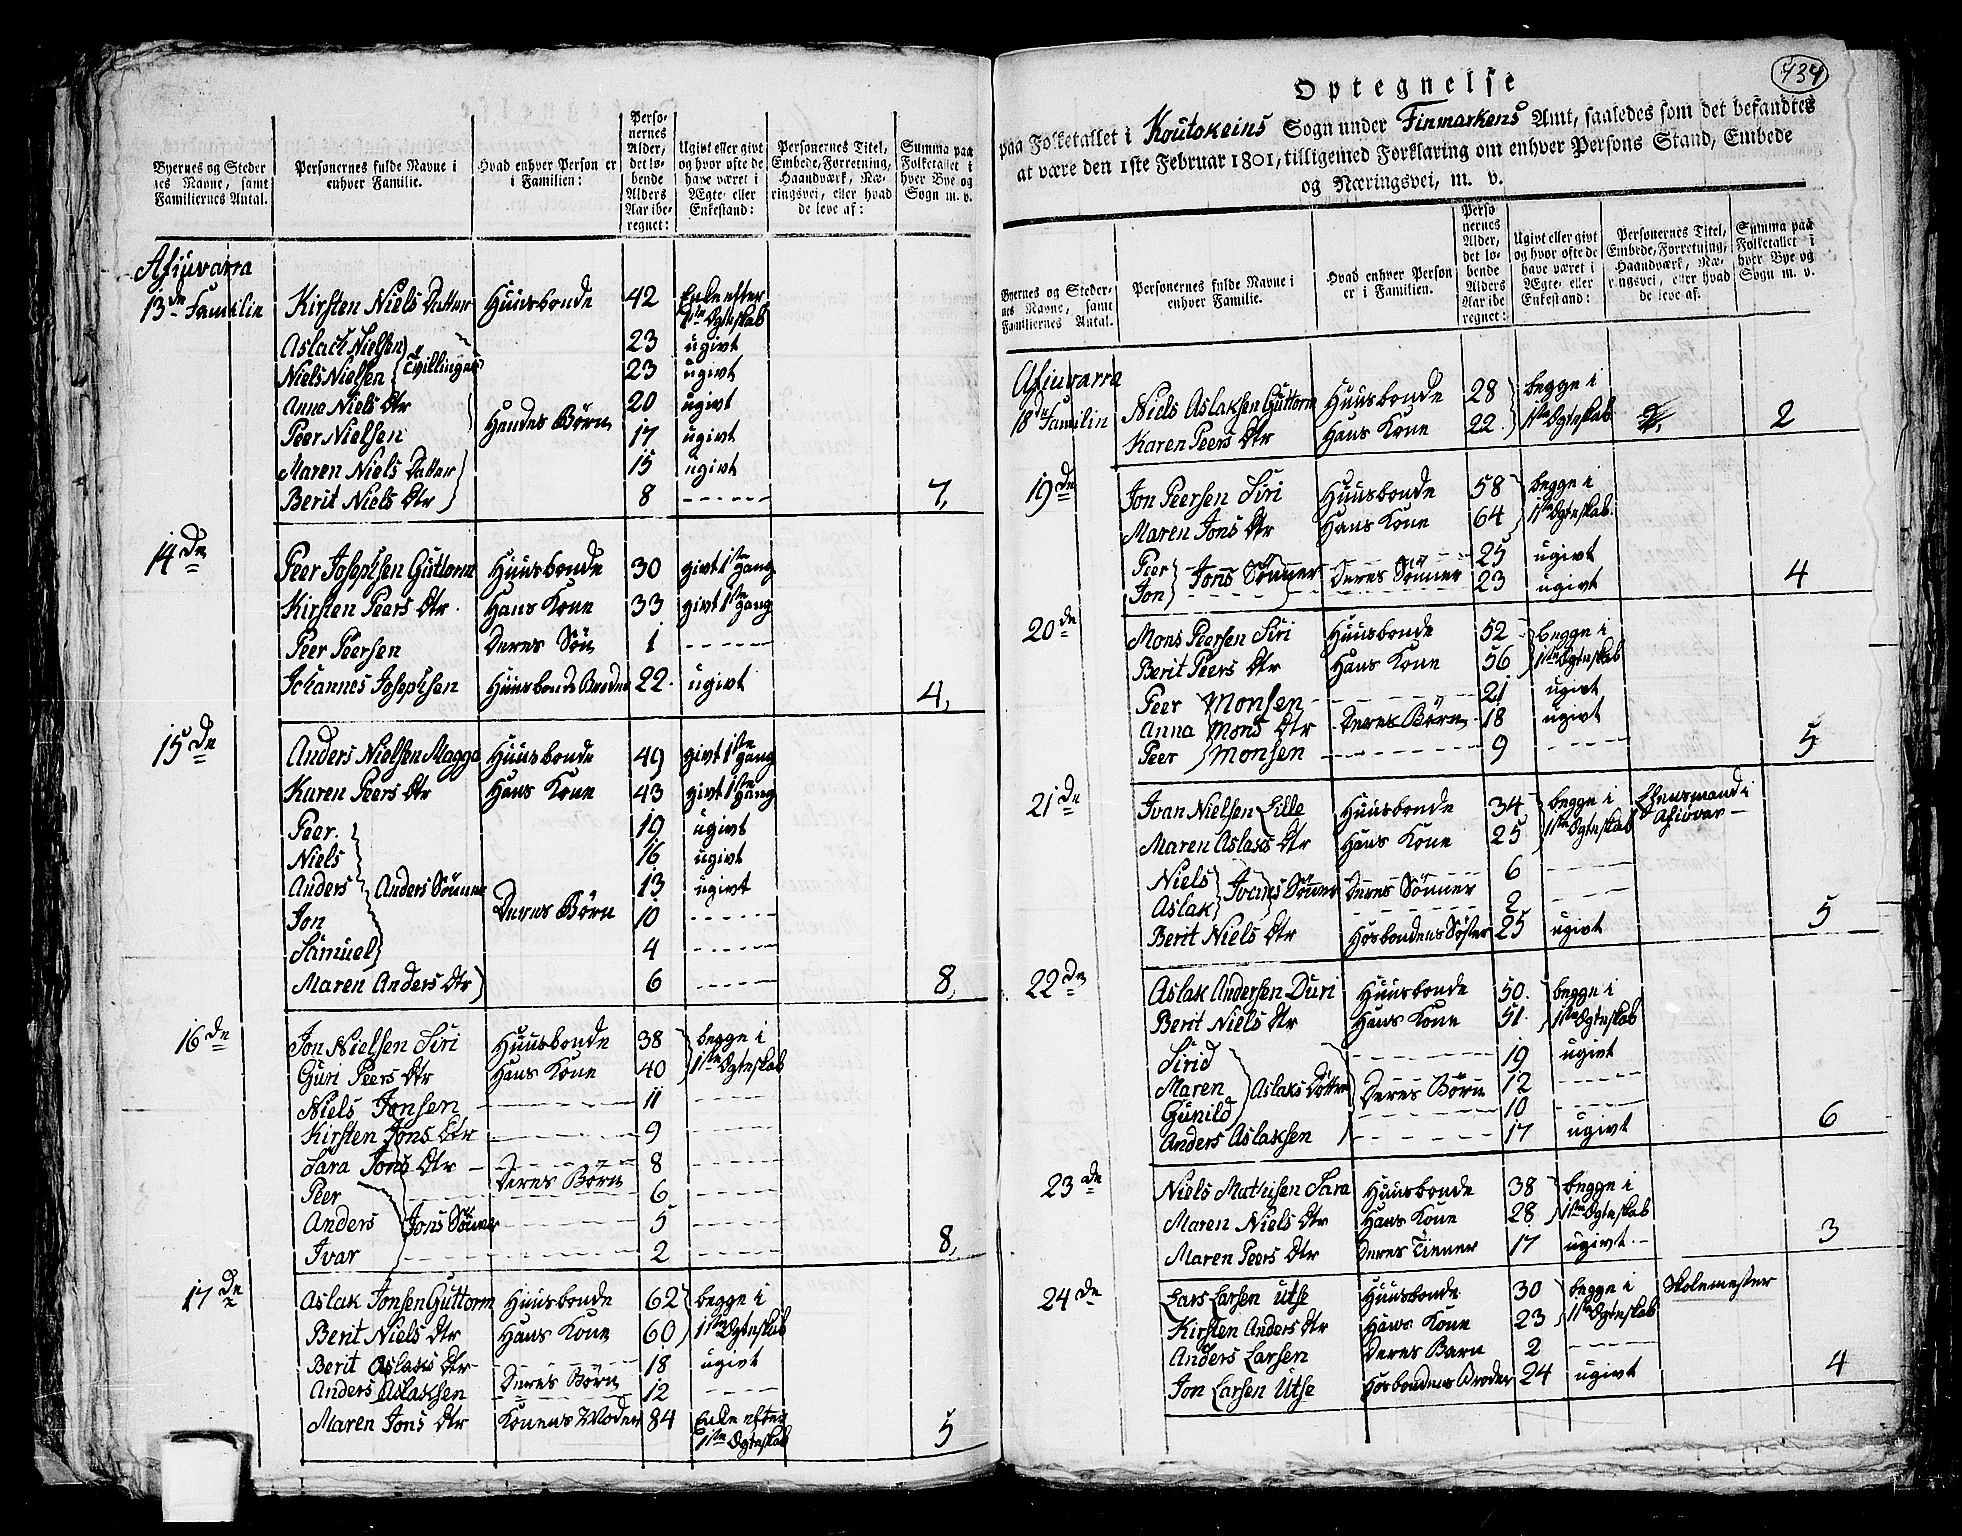 Byernes og Steder
nes Navne, samt
Familiernes Antal.
Personernes fulde Navne i
enhver Familie.
Hvad enhver Person er
i Familien:
Perso-
nernes
Alder,
det lø-
bende
Alders
Aar ibe-
regnet:
Ugivt eller givt
og hvor ofte de
have været i
Ægte- eller
Enkestand:
Personernes Titel,
Embede, Forretning,
Haandværk, Næ-
ringsvei, eller hvad
de leve af:
Summa paa
Folketallet i
hver Bye og
Sogn m. v.
Afiuvarra
13de Familie Kirsten Niels Datter Huusbonde 42 Enke efter
1ste Ægteskab
Aslach Nielsen 23 ugivt
Niels Nielsen Tvillinger 23 ugivt
Anna Niels Dtr 20 ugivt
Peer Nielsen Hendes Børn 17 ugivt
Maren Niels Datter 15 ugivt
Berit Niels Dtr 8 ------ 7,
14de Peer Josephsen Guttorm Huusbonde 30 givt 1ste gang
Kirsten Peers Dtr. Hans Kone 33 givt 1ste gang
Peer Peersen Deres Søn 1 ------
Johannes Josephsen Huusbonde Broder 22. ugivt 4,
15de Anders Nielsen Magga Huusbonde 49 givt 1ste gang
Karen Peers Dtr Hans Kone 43 givt 1ste gang
Peer. 19 ugivt
Niels 16 ugivt
Anders Anders Sønner 13 ugivt
Jon Deres Børn 10 ------
Samuel 4 ------
Maren Anders Dtr 6 ------ 8,
16de Jon Nielsen Siri Huusbonde 38 begge i
Guri Peers Dtr Hans Kone 40 1ste Ægteskab
Niels Jonsen 11 ------
Kirsten Jons Dtr 9 ------
Sara Jons Dtr 8 ------
Peer Deres Børn 6 ------
Anders Jons Sønner 5 ------
Ivar 2 ------ 8,
17de Aslak Jonsen Guttorm Huusbonde 62 begge i
Berit Niels Dtr Hans Kone 60 1ste Ægteskab
Berit Aslaks Dtr 18 ugivt
Anders Aslaksen Deres Børn 12 ------
Maren Jons Dtr Konens Moder 84 Enke efter
1ste Ægteskab 5
434
Optegnelse
paa Folketallet i Koutokeins Sogn under Finmarkens Amt, saaledes som det befandtes
at være den 1ste Februar 1801, tilligemed Forklaring om enhver Persons Stand, Embede
og Næringsvei, m. v.
Byernes og Steder-
nes Navne, samt
Familiernes Antal.
Personernes fulde Navne i
enhver Familie.
Hvad enhver Person
er i Familien.
Perso
nernes
Alder,
det lø-
bende
Alders
Aar ibe
regnet:
Ugivt eller givt
og hvor ofte de
have været i
Ægte- eller
Enkestand:
Personernes Titel,
Embede, Forretning,
Haandværk, Næ-
ringsvei, eller hvad
de leve af.
Summa paa
Folketallet i
hver Bye og
Sogn m. v.
Afiuvarra
18de Familie Niels Aslaksen Guttorm Huusbonde 28 begge i
Karen Peers Dtr Hans Kone 22. 1ste Ægteskab 2. 2
19de Jon Peersen Siri Huusbonde 58 begge i
Maren Jons Dtr Hans Kone 64 1ste Ægteskab.
Peer Jons Sønner Deres Sønner 25 ugivt
Jon 23 ugivt 4
20de Mons Peersen Siri Huusbonde 52 begge i
Berit Peers Dtr Hans Kone 56 1ste Ægteskab
Peer Monsen 21 ugivt
Anna Mons Dtr Deres Børn 18 ugivt
Peer Monsen 9 ----- 5
21de Ivan Nielsen Lille Huusbonde 34 begge i Lhensmand i
Maren Aslaks Dtr Hans Kone 25 1ste Ægteskab Afiovar
Niels 6 -----
Aslak Ivans Sønner Deres Sønner 2 -----
Berit Niels Dtr Hosbondens Søster 25 ugivt 5
22de Aslak Andersen Duri Huusbonde 50. begge i
Berit Niels Dtr Hans Kone 51. 1ste Ægteskab
Sirid 19 ugivt
Maren Aslaks Døttre Deres Børn 12 -----
Gunild 10 -----
Anders Aslaksen 17 ugivt 6
23de Niels Mathisen Sara Huusbonde 38 begge i
Maren Niels Dtr Hans Kone 28 1ste Ægteskab
Maren Peers Dtr Deres Tiener 17 ugivt. 3
24de Lars Larsen Utse Huusbonde 30 begge i Skolemester
Kirsten Anders Dtr Hans Kone 23 1ste Ægteskab
Anders Larsen Deres Barn 2 -----
Jon Larsen Utse Hosbondens Broder 24 ugivt 4